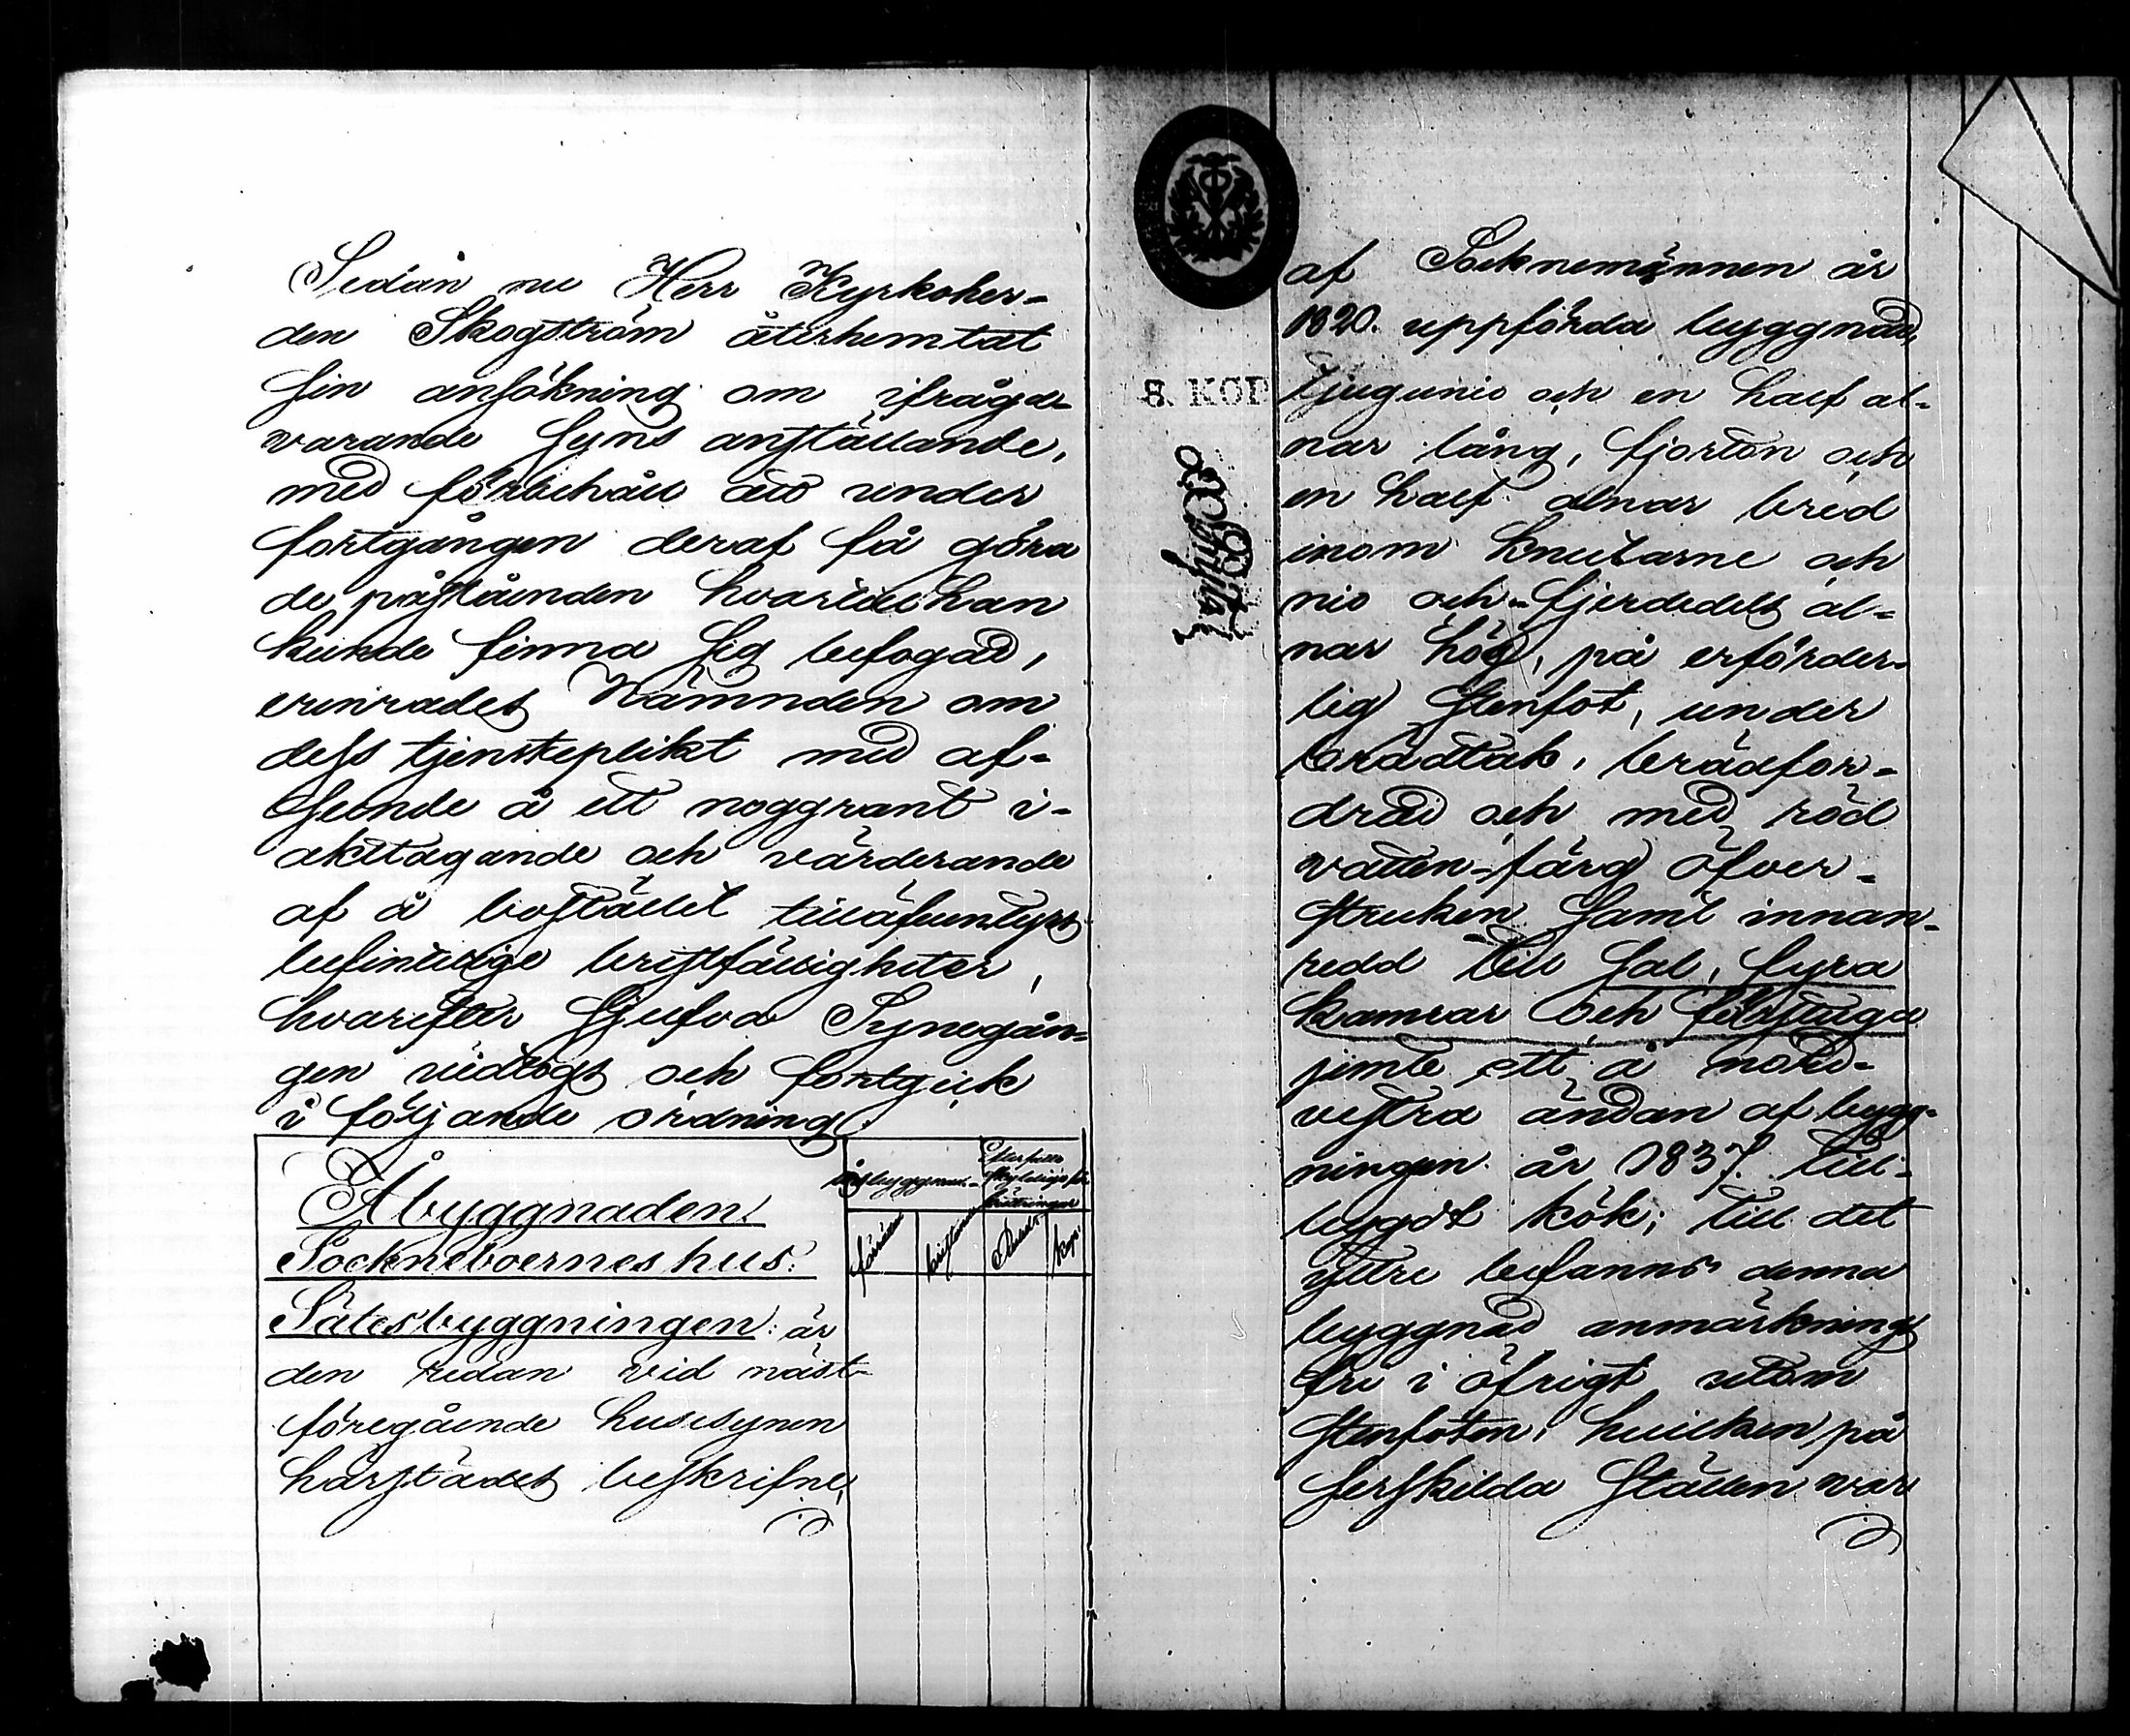 Sedan nu Herr Kyrkoher-
den Skogström återhemtat
sin ansökning om ifråga-
varande Syns anställande,
med förbehåll att under
fortgången deraf få göra
de påståenden hvartill han
kunde finna sig befogad,
erinrades Nämnden om
dess tjensteplikt med af-
seende å ett noggrant i-
akttagande och värderande
af å bostället tilläfventyrs
befintelige bristfälligheter,
hvarefter sjelfva Synegån-
gen vidtogs och fortgick
i följande ordning:
Åbyggnaden.
Socknéboernes hus.
Sätesbyggningen: är
den redan vid näst-
föregående husesynen
härstädes beskrifne,
Åbyggnad.
bristande
Rubel
Kop.
8. KOP
af Socknemännen år
1820. uppförda byggnad,
tjugunio och en half al-
nar lång, fjorton och
en half alnar bred
inom knutarne och
nio och fjerdedels al-
nar hög, på erforder-
lig stenfot, under
brädtak, brädfor-
drad och med röd
vatten-färg öfver-
struken samt innan-
redd till sal, fyra
kamrar och förstuga
jemte ett å nord-
vestra ändan af bygg-
ningen år 1837. till-
bygdt kök; till det
yttre befanns denna
byggnad anmärknings
fri i öfrigt utom
stenfoten, hvilken på
serskilda ställen var